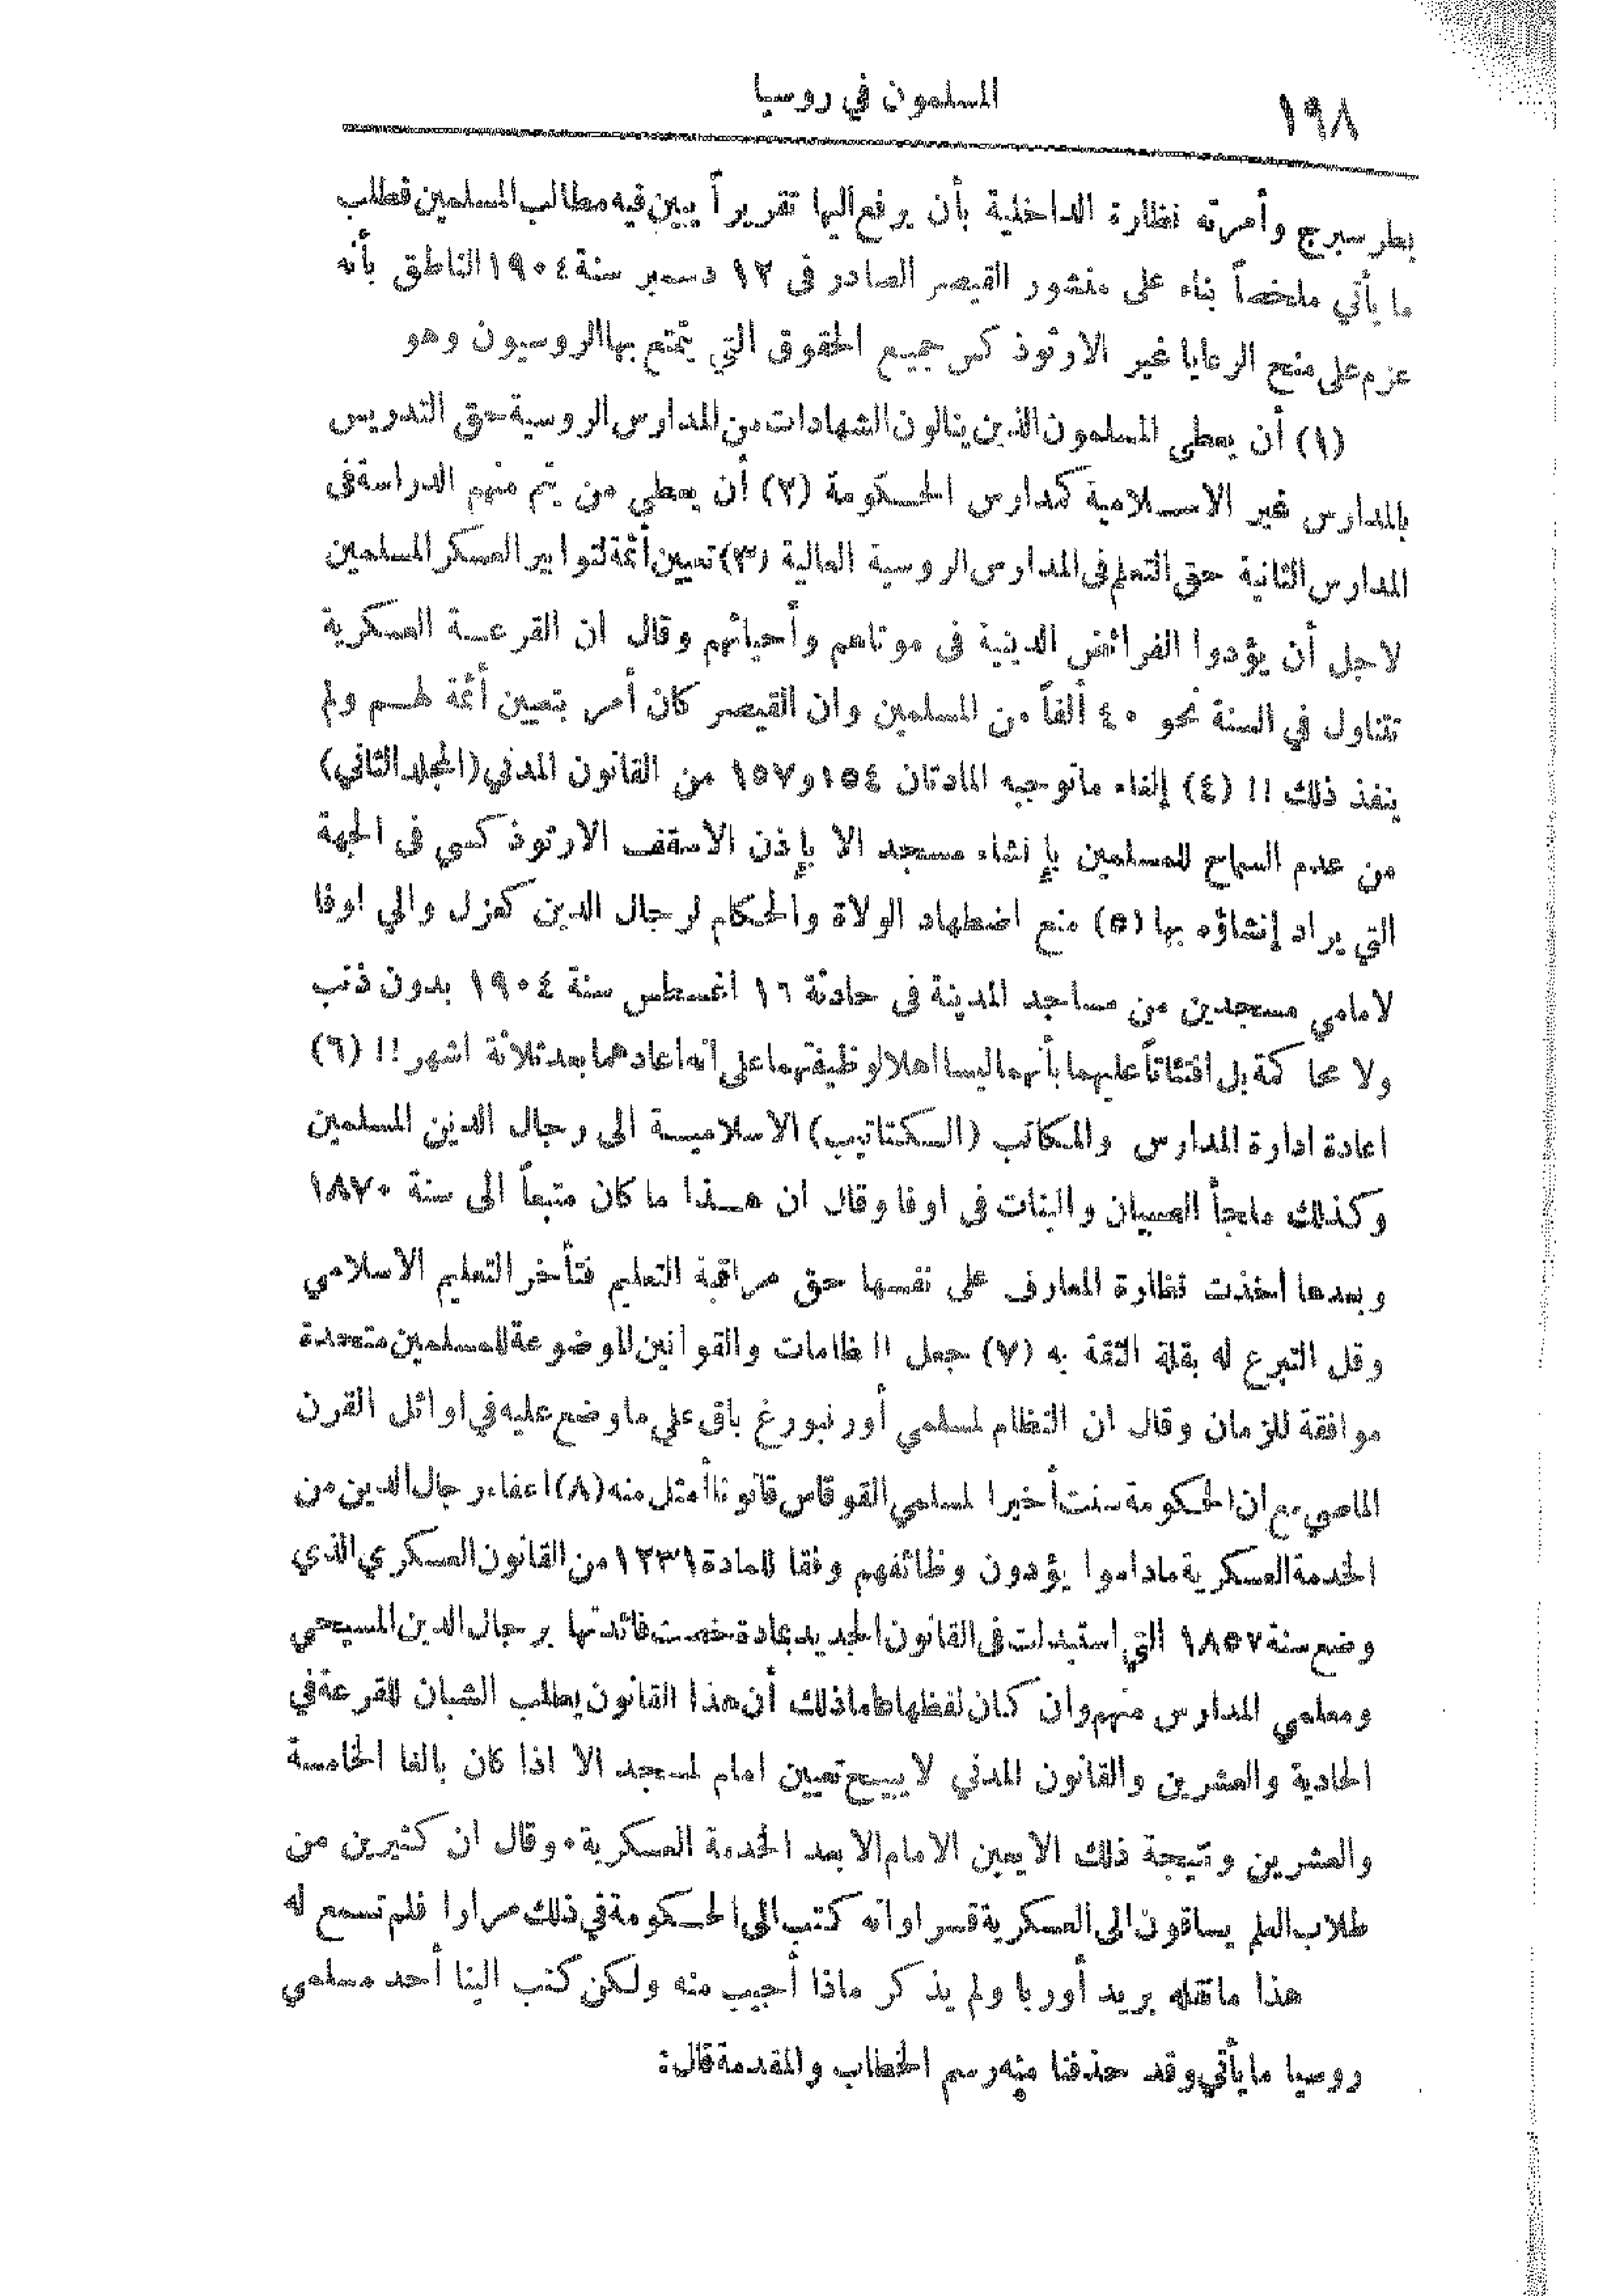 ١٩٨
المسلمون في روسيا
بطرسبرج وأمرته نظارة الداخلية بأن يرفع اليها تقريراً يبين فيه مطالب المسلمين فطلب
ما يأتي ملخصاً بناء على منشور القيصر الصادر في ١٢ دسمبر سنة ١٩٠٤ الناطق بأنه
عزم على منح الرعايا غير الارثوذكس جميع الحقوق التي يتمتع بها الروسيون وهو
(١) أن يعطى المسلمون الذين ينالون الشهادات من المدارس الروسية حق التدريس
بالمدارس غير الاسلامية كمدارس الحكومة (٢) أن يعطي من يتم منهم الدراسة في
المدارس الثانية حق التعلم في المدارس الروسية العالية (٣) تعيين أئمة لتوابير العسكر المسلمين
لاجل أن يؤدوا الفرائض الدينية في موتاهم وأحيائهم وقال ان القرعة العسكرية
تتناول في السنة نحو ٤٠ ألفاً من المسلمين وان القيصر كان أمر بتعيين أئمة لهم ولم
ينفذ ذلك !! (٤) إلغاء ماتوجبه المادتان ١٥٤ و١٥٧ من القانون المدني (المجلد الثاني)
من عدم السماح للمسلمين بإنشاء مسجد الا بإذن الاسقف الارثوذكسي في الجهة
التي يراد إنشاؤه بها (٥) منع اضطهاد الولاة والحكام لرجال الدين كعزل والي اوفا
لامامي مسجدين من مساجد المدينة في حادثة ١٦ اغسطس سنة ١٩٠٤ بدون ذنب
ولا محاكمة بل افتئاتاً عليهما بأنهما ليسا اهلا لوظيفتهما على انه اعادهما بعد ثلاثة اشهر !! (٦)
اعادة ادارة المدارس والمكاتب (الكتاتيب) الاسلامية الى رجال الدين المسلمين
وكذلك ملجأ الصبيان والبنات في اوفا وقال ان هذا ما كان متبعاً الى سنة ١٨٧٠
وبعدها اخذت نظارة المعارف على نفسها حق مراقبة التعليم فتأخر التعليم الاسلامي
وقل التبرع له بقلة الثقة به (٧) جعل النظامات والقوانين الموضوعة للمسلمين متحدة
موافقة للزمان وقال ان النظام لمسلمي أورنبورغ باق على ما وضع عليه في اوائل القرن
الماضي مع ان الحكومة سنت أخيرا لمسلمي القوقاس قانونا أمثل منه (٨) اعفاء رجال الدين من
الخدمة العسكرية ماداموا يؤدون وظائفهم وفقا للمادة ١٢٣١ من القانون العسكري الذي
وضع سنة ١٨٥٧ التي استبدلت في القانون الجديد بمادة خصت فائدتها برجال الدين المسيحي
ومعلمي المدارس منهم وان كان لفظها عاما ذلك أن هذا القانون يطلب الشبان للقرعة في
الحادية والعشرين والقانون المدني لا يبيح تعيين امام لمسجد الا اذا كان بالغا الخامسة
والعشرين ونتيجة ذلك الا يعين الامام الا بعد الخدمة العسكرية٠ وقال ان كثيرين من
طلاب العلم يساقون الى العسكرية قسرا وانه كتب الى الحكومة في ذلك مرارا فلم تسمع له
هذا ما نقله بريد أوربا ولم يذكر ماذا أجيب منه ولكن كتب الينا أحد مسلمي
روسيا ما يأتي وقد حذفنا منه رسم الخطاب والمقدمة قال: